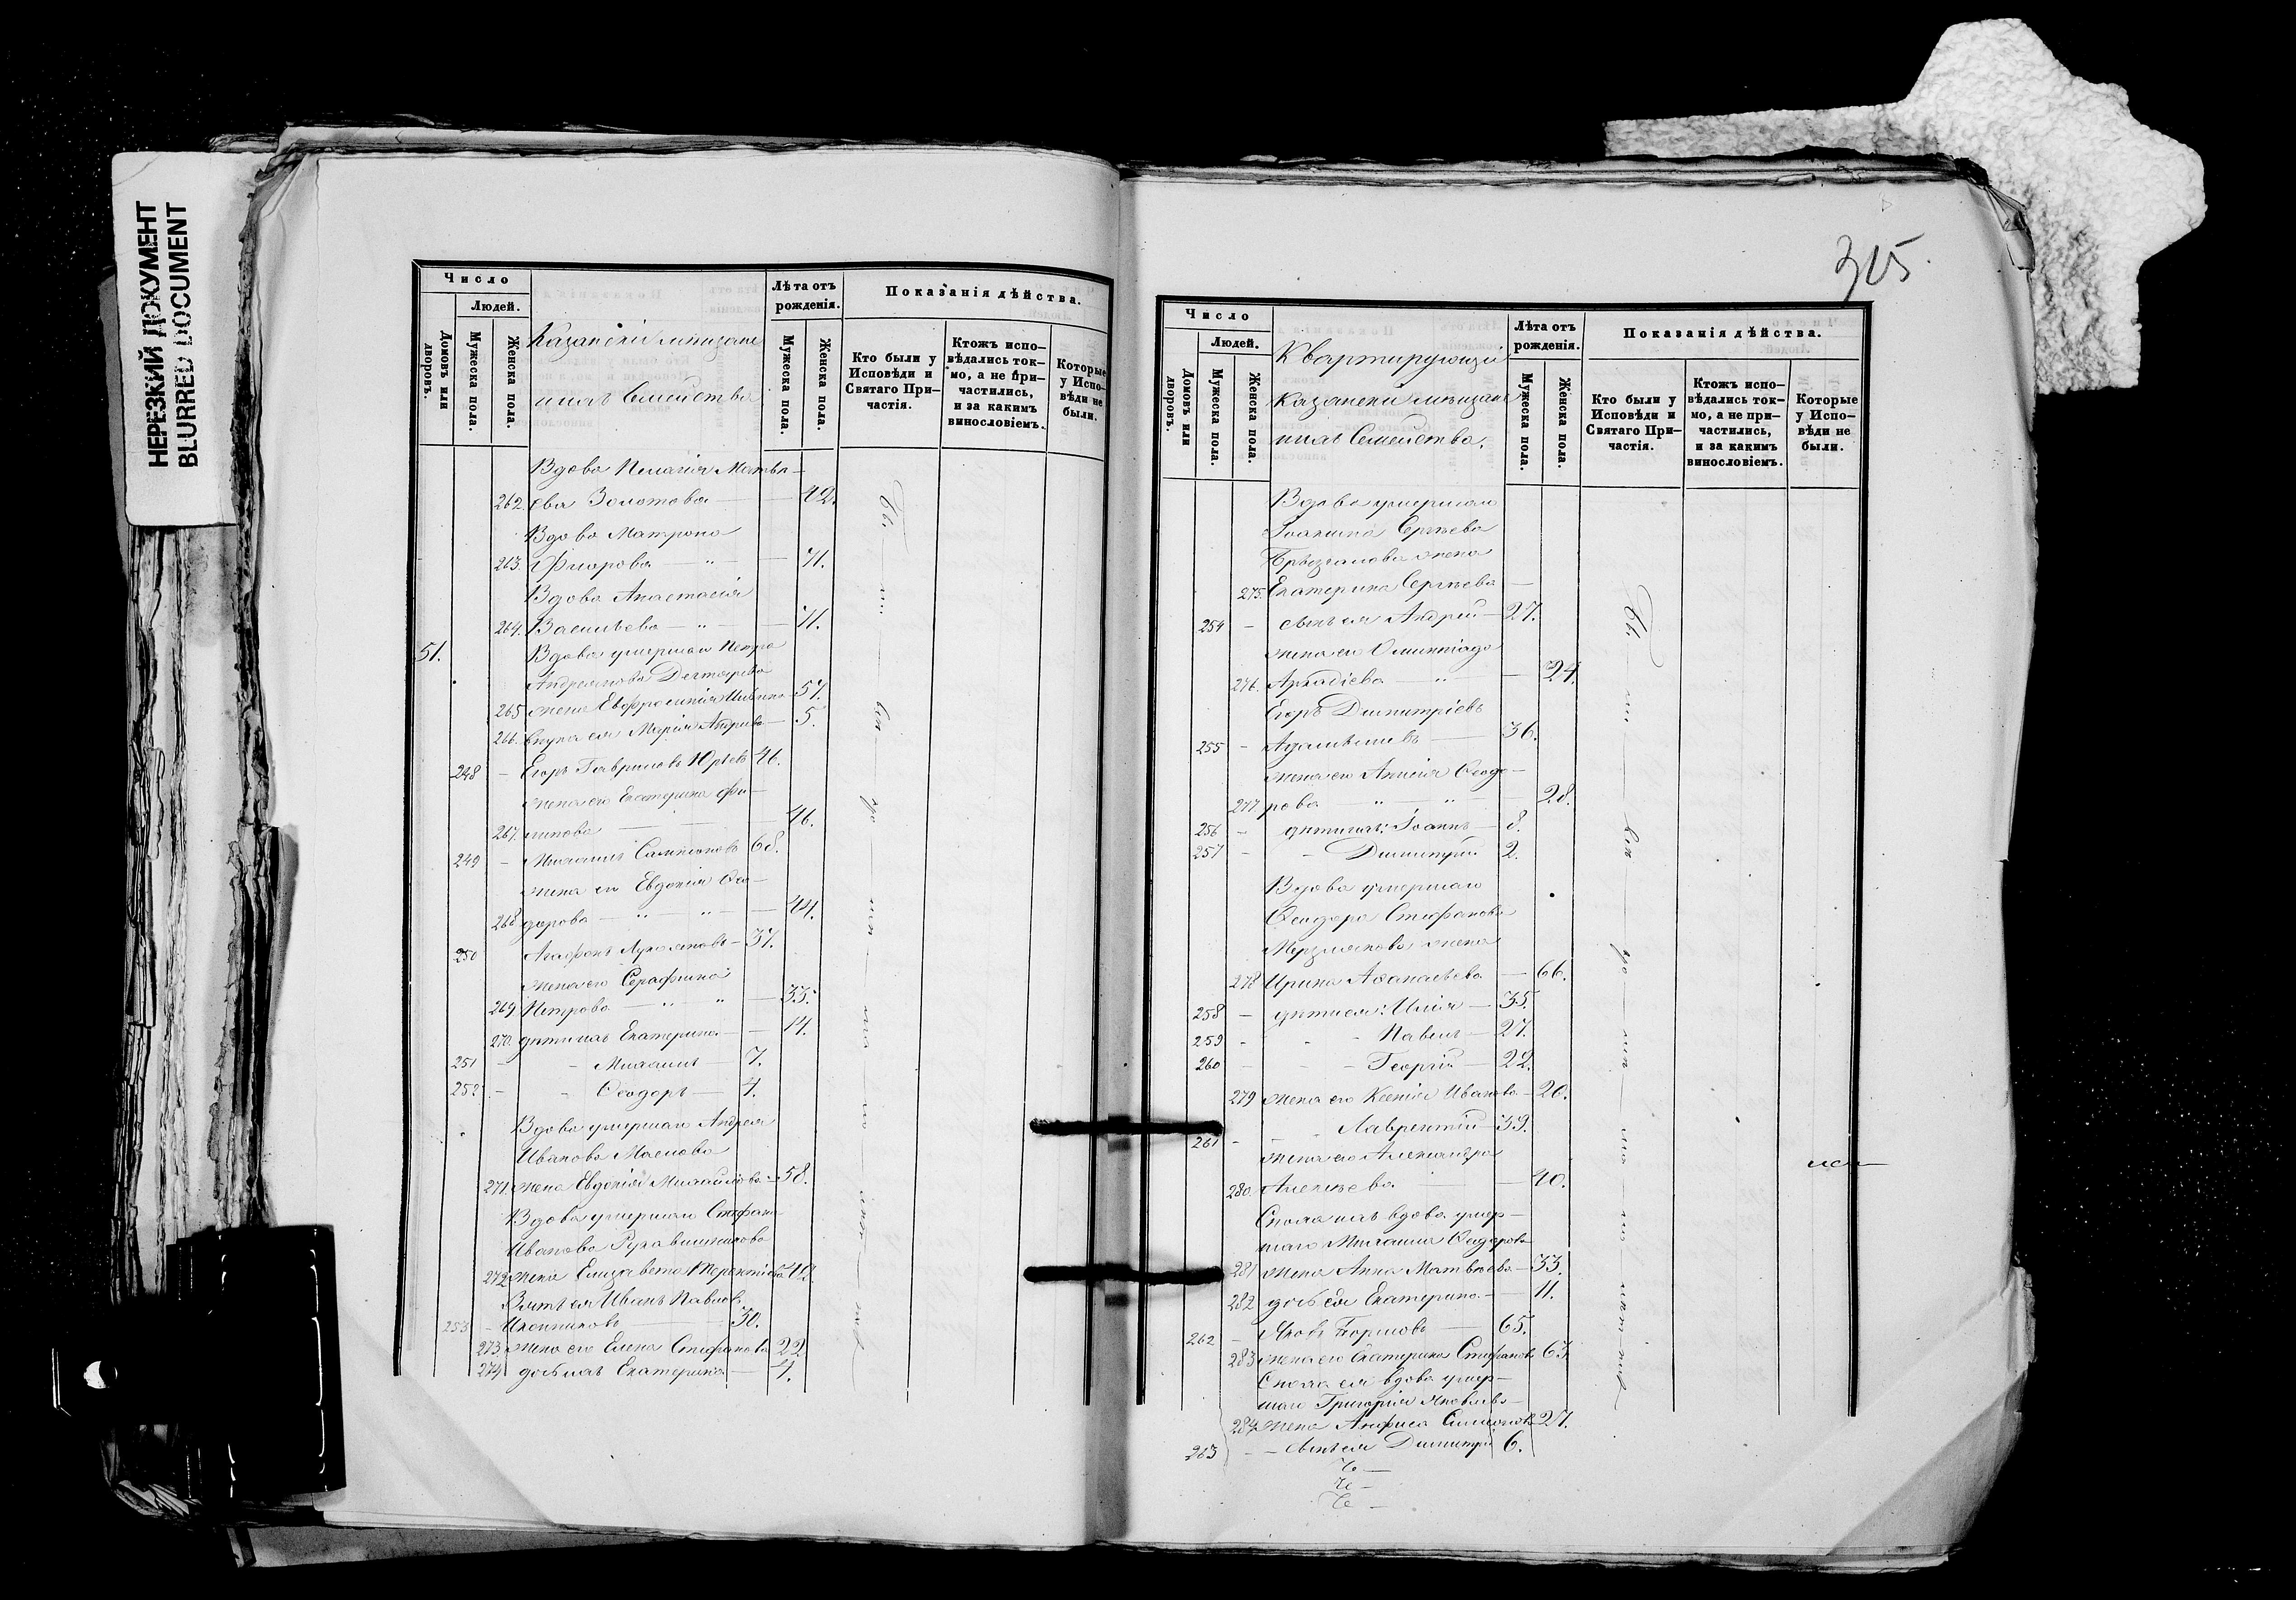 НЕРЕЗКИЙ ДОКУМЕНТ
BLURRED DOCUMENT
Число
Людей.
Домовъ или дворовъ.
Мужеска пола.
Женска пола.
Казанскіе мѣщане
и ихъ Семейства
Лѣта отъ рожденія.
Мужеска пола.
Женска пола.
Показанія дѣйства.
Кто были у Исповѣди и Святаго Причастія.
Ктожъ исповѣдались токмо, а не причастились, и за какимъ винословіемъ.
Которые у Исповѣди не были.
Вдова Пелагія Матвѣ-
262. ева Золотова — 42.
Вдова Матрона
263. Фролова — " — 71.
Вдова Анастасія
264. Васильева — " — 71.
51. Вдова умершаго Петра
Андреянова Дегтярева
265 жена Евфросинія — 57.
266. внука ея Марія Андреева — 5.
248 – Егоръ Гавриловъ Юрьевъ 46.
жена его Екатерина Фи-
267. липова — 46.
249 – Михаилъ 68.
жена его Евдокія Ѳео-
268 дорова — " — " — 44.
250 Агафонъ Лукояновъ — 37.
жена его Серафима
269. Петрова — " " — 35.
270. дѣти ихъ Екатерина — 14.
251 – – Михаилъ — 7.
252. – – Ѳеодоръ — 4.
Вдова умершаго Андрея
Иванова Маслова
271. жена Евдокія Михайлова — 58.
Вдова умершаго Стефана
Иванова Рукавишникова
272 жена Елизавета Терентіева 49.
Зять ея Иванъ Павловъ
253 – Иконниковъ — 30.
273. жена его Елена Стефанова 22.
274 дочь ихъ Екатерина — 4.
Бы — ли — вси — у —
315
Число
Людей.
Домовъ или дворовъ.
Мужеска пола.
Женска пола.
Квартирующіе
Казанскіе мѣщане
и ихъ Семейства.
Лѣта отъ рожденія.
Мужеска пола.
Женска пола.
Показанія дѣйства.
Кто были у Исповѣди и Святаго Причастія.
Ктожъ исповѣдались токмо, а не причастились, и за какимъ винословіемъ.
Которые у Исповѣди не были.
Вдова умершаго
Іоанна Сергѣева
жена
275. Екатерина Сергѣева —
254 – сынъ ея Андрей — 27.
жена его Олимпіада
276. Аркадіева — " — 24.
Егоръ Димитріевъ
255 – — 36.
жена его Анисія Ѳеодо-
277. рова " — " — 28.
256 – дѣти ихъ: Іоаннъ — 8.
257 – – Димитрій 2.
Вдова умершаго
Ѳеодора Стефанова
Мерзлякова жена
278 Ирина Аѳанасьева — 66.
258 – дѣти ея: Илія — 35.
259 – – – Павелъ — 27.
260 – – – Георгій — 22.
279 жена его Ксенія Иванова — 20.
261 – – Лаврентій — 39.
жена его Александра
280. Алексѣева — 40.
Сноха ихъ вдова умер-
шаго Михаила Ѳедорова
281 жена Анна Матвѣева — 33.
282 дочь ея Екатерина — 11.
262 – Яковъ — 65.
283 жена его Екатерина Стефанова 63
Сноха ея вдова умер-
шаго Григорія Яковлева —
284 жена Анфиса 27.
263 – – сынъ ея Димитрій 6.